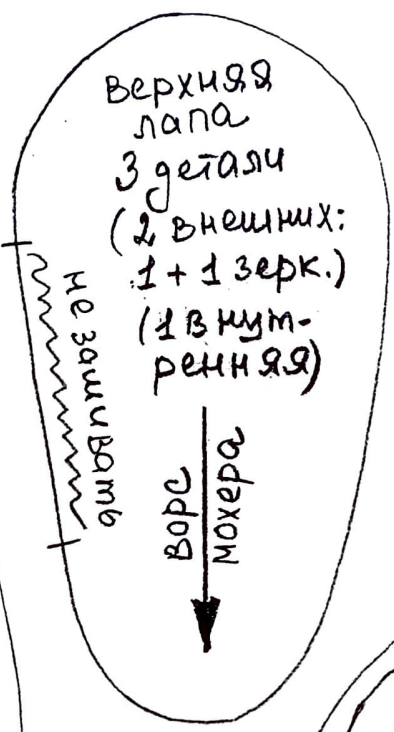 верхняя
лапа
3 детали
(2 внешних:
1 + 1 зерк.)
(1 внут-
ренняя)
не зашивать
ворс
мохера